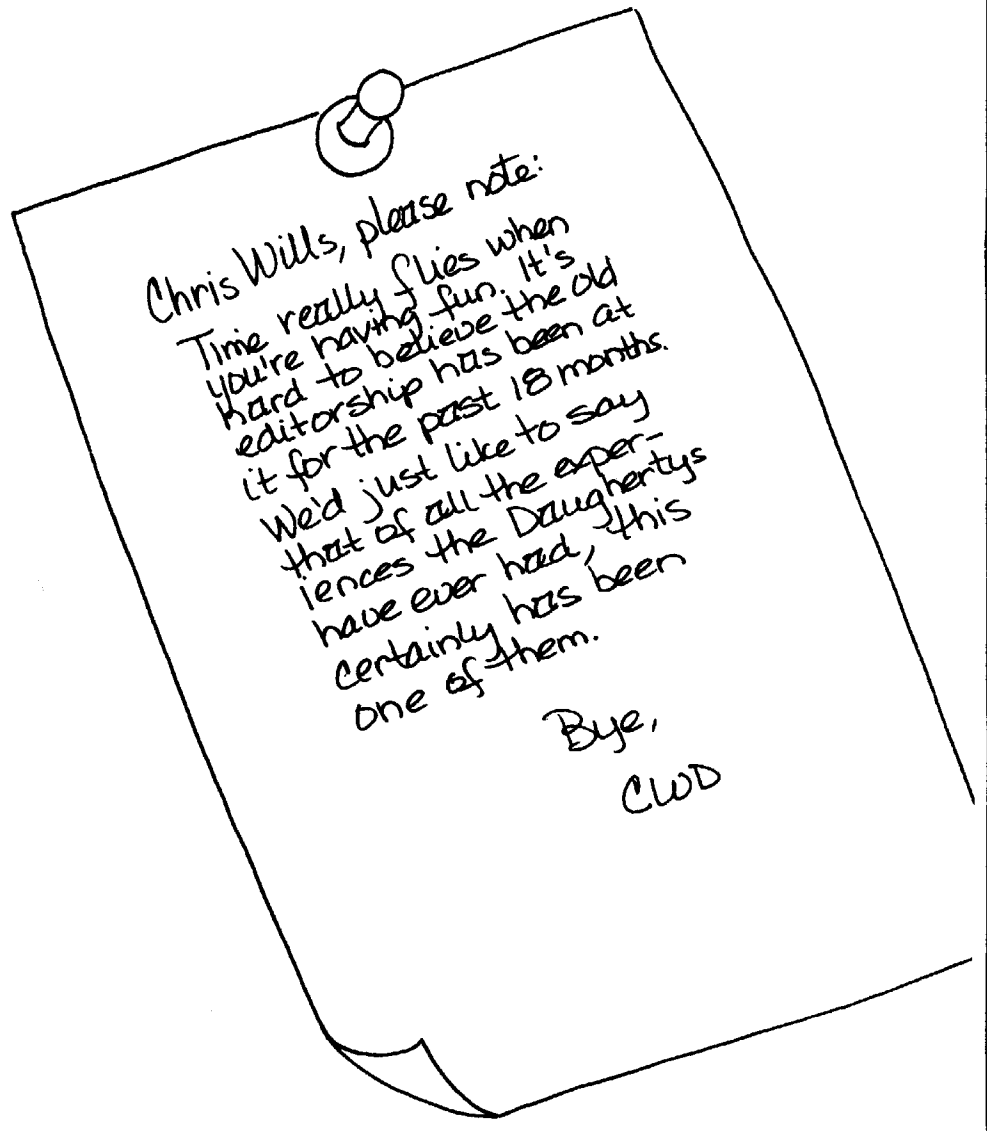 Chris Wills, please note:
Time really flies when
you're having fun. It's
hard to believe the old
editorship has been at
it for the past 18 months.
We'd just like to say
that of all the exper-
iences the Daughertys
have ever had, this
certainly has been
one of them.
Bye,
CWD